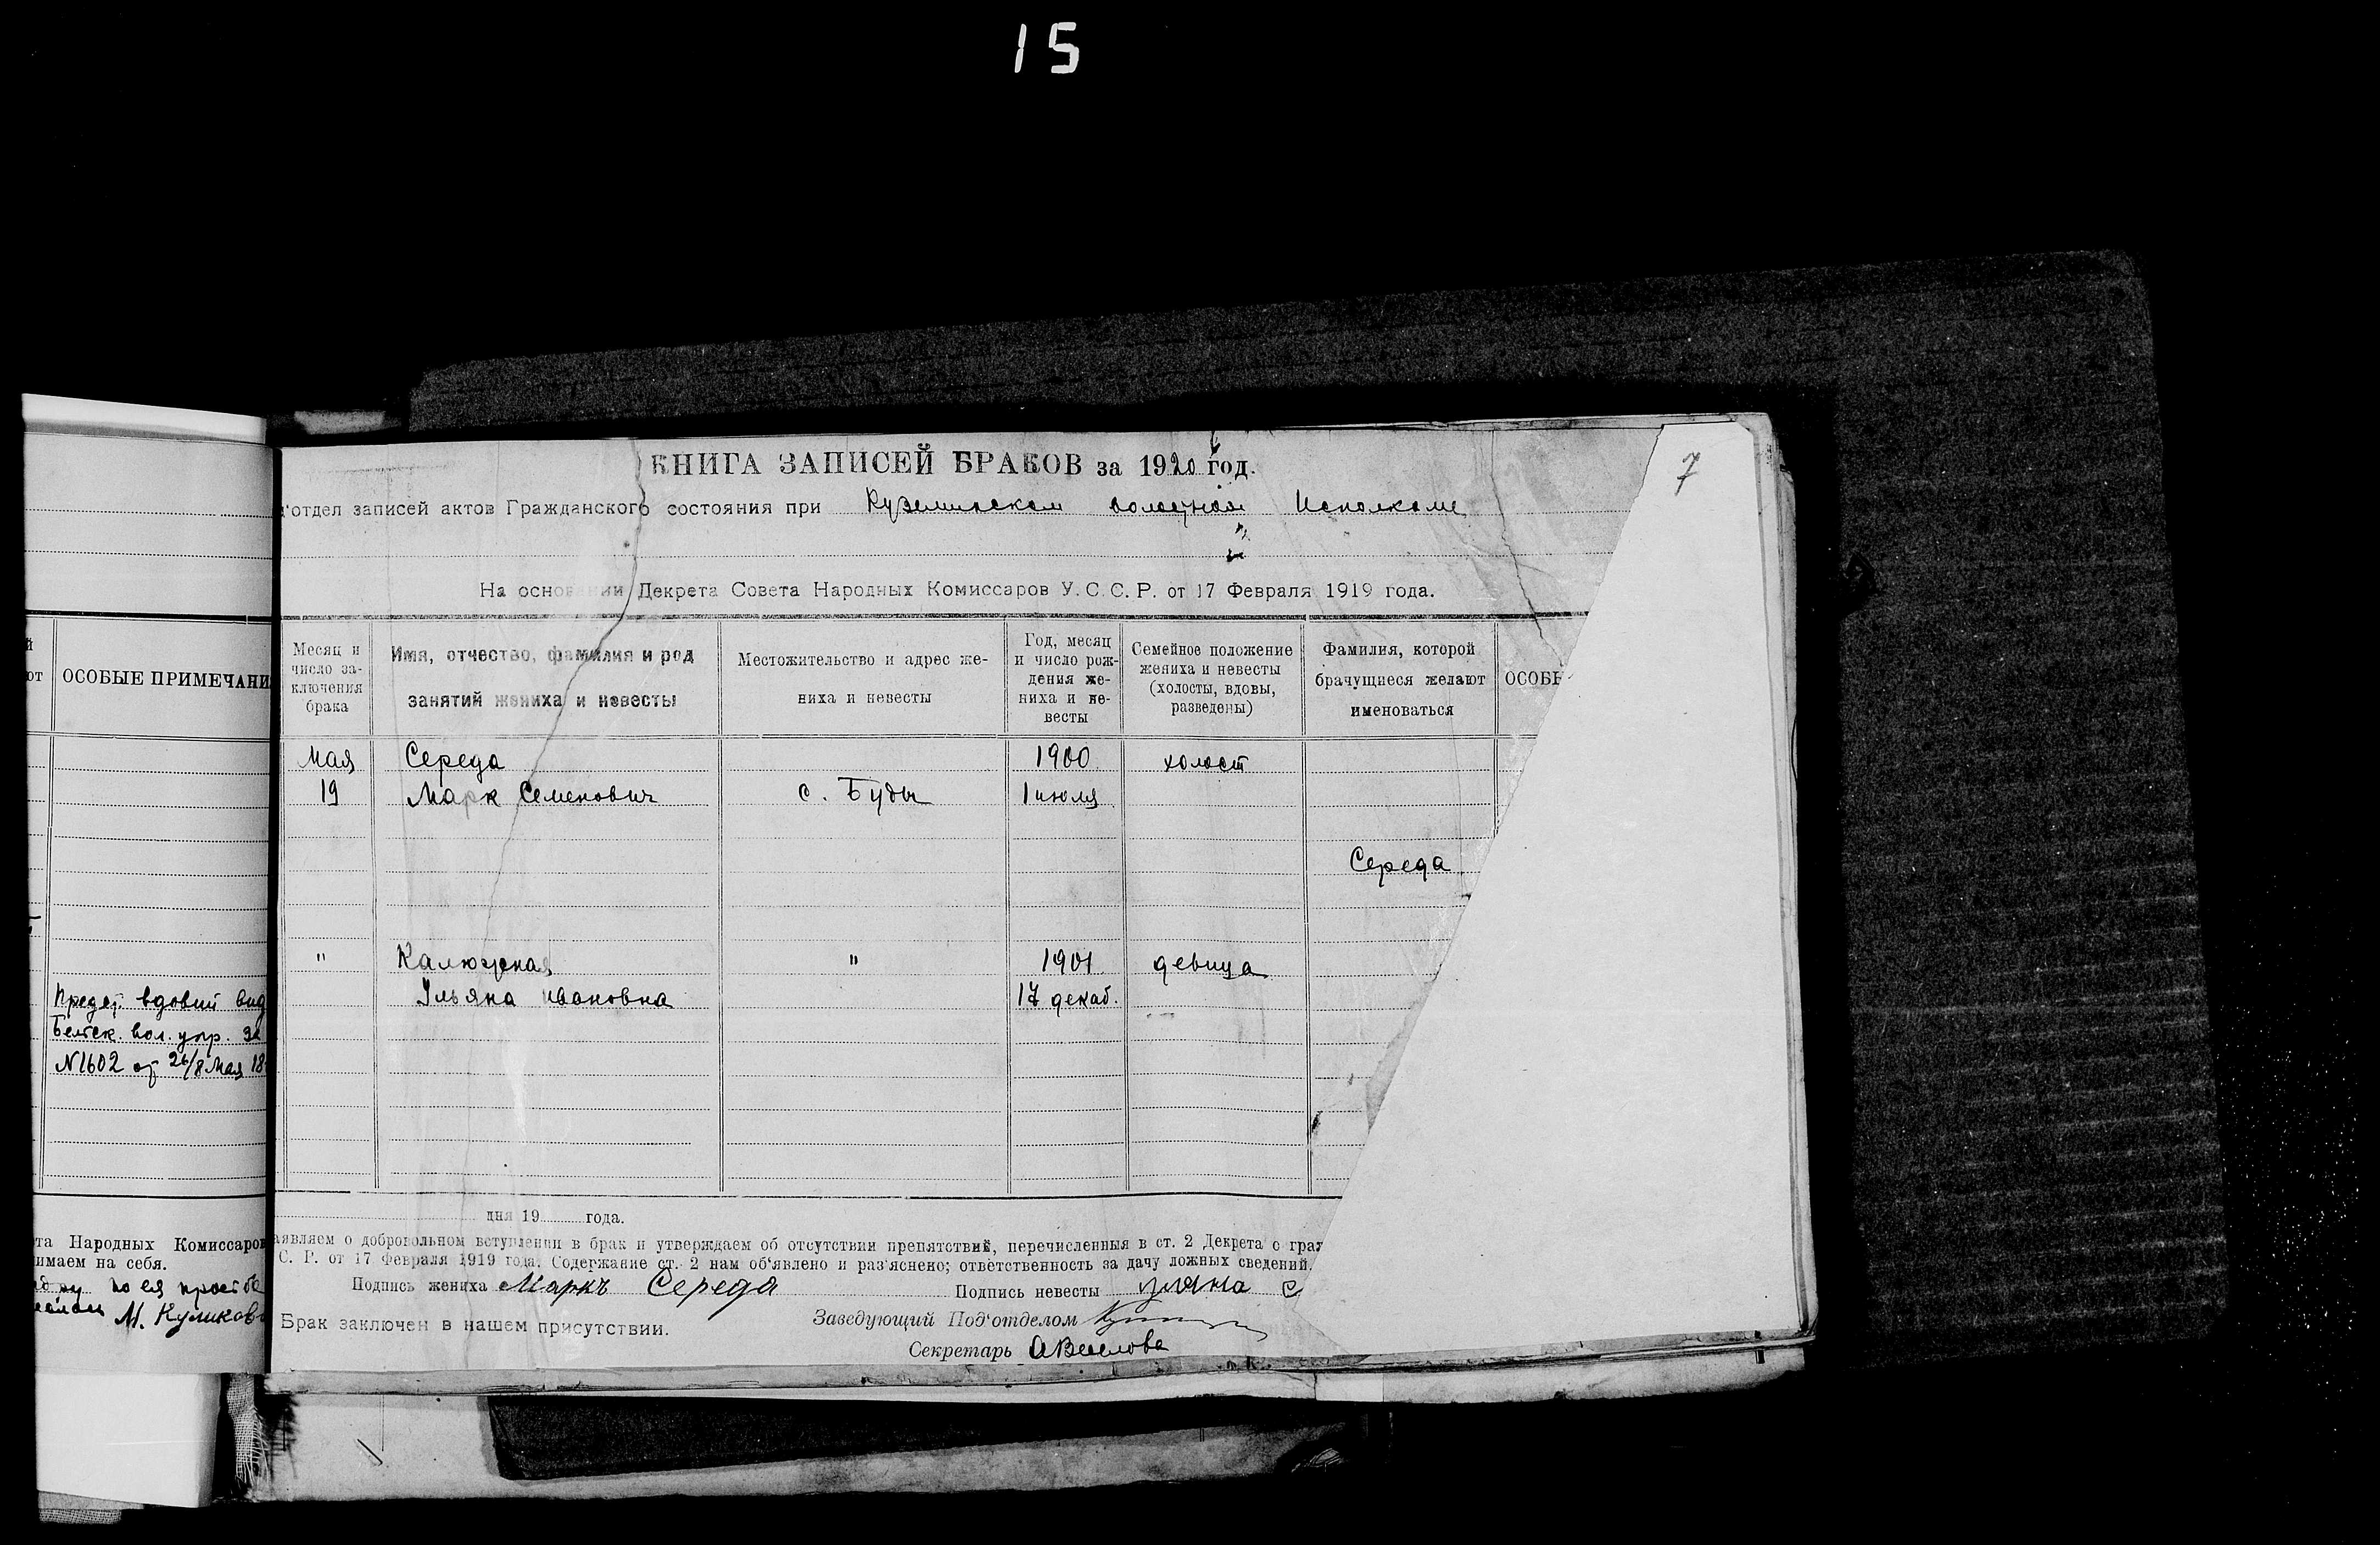 15
КНИГА ЗАПИСЕЙ БРАКОВ за 1920 год.
7
д'отдел записей актов Гражданского состояния при Куземинском Исполкоме
На основании Декрета Совета Народных Комиссаров У.С.С.Р. от 17 Февраля 1919 года.
й
от
ОСОБЫЕ ПРИМЕЧАНИ
Месяц и число заключения брака
Имя, отчество, фамилия и род занятий жениха и невесты
Местожительство и адрес жениха и невесты
Год, месяц и число рождения жениха и невесты
Семейное положение жениха и невесты (холосты, вдовы, разведены)
Фамилия, которой брачущиеся желают именоваться
ОСОБЫ
Мая Середа 1900 холост
19 Марк Семенович с. Буды 1 июля
Середа
" Калюжная " 1901 девица
Ульяна Ивановна декаб.
вдовий вид
вол. упр. за
N1602 от 26/8 Мая 18
дня 19 года.
аявляем о добровольном вступлении в брак и утверждаем об отсутствии препятствий, перечисленныя в ст. 2 Декрета о граж
С. Р. от 17 Февраля 1919 года. Содержание ст. 2 нам об'явлено и раз'яснено; ответственность за дачу ложных сведений.
Подпись жениха Маркъ Середа Подпись невесты уляна С
Брак заключен в нашем присутствии. Заведующий Под'отделом
Секретарь
та Народных Комиссаров
имаем на себя.
по ея просьбе
М. Куликов